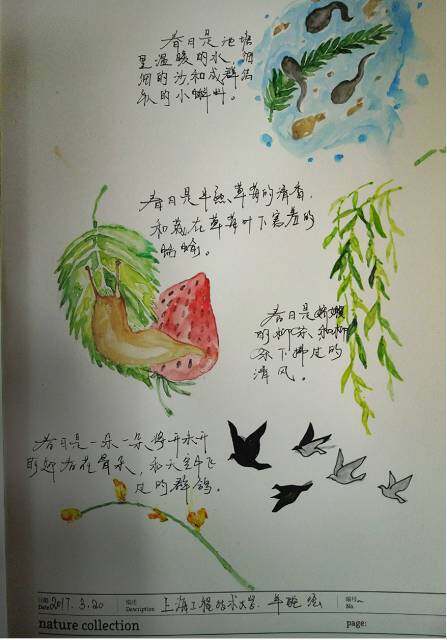 春日是池塘
里温暖的水,细
细的沙和成群结
队的小蝌蚪。
春日是半熟草莓的清香,
和藏在草莓叶下害羞的
蛞蝓。
春日是嫩嫩
的柳条和柳
条下拂过的
清风。
春日是一朵一朵将开未开
的迎春花骨朵,和天空中飞
过的群鸽。
日期
Date 2017.3.20
描述
Description 上海工程技术大学
编号
No.
nature collection
page: